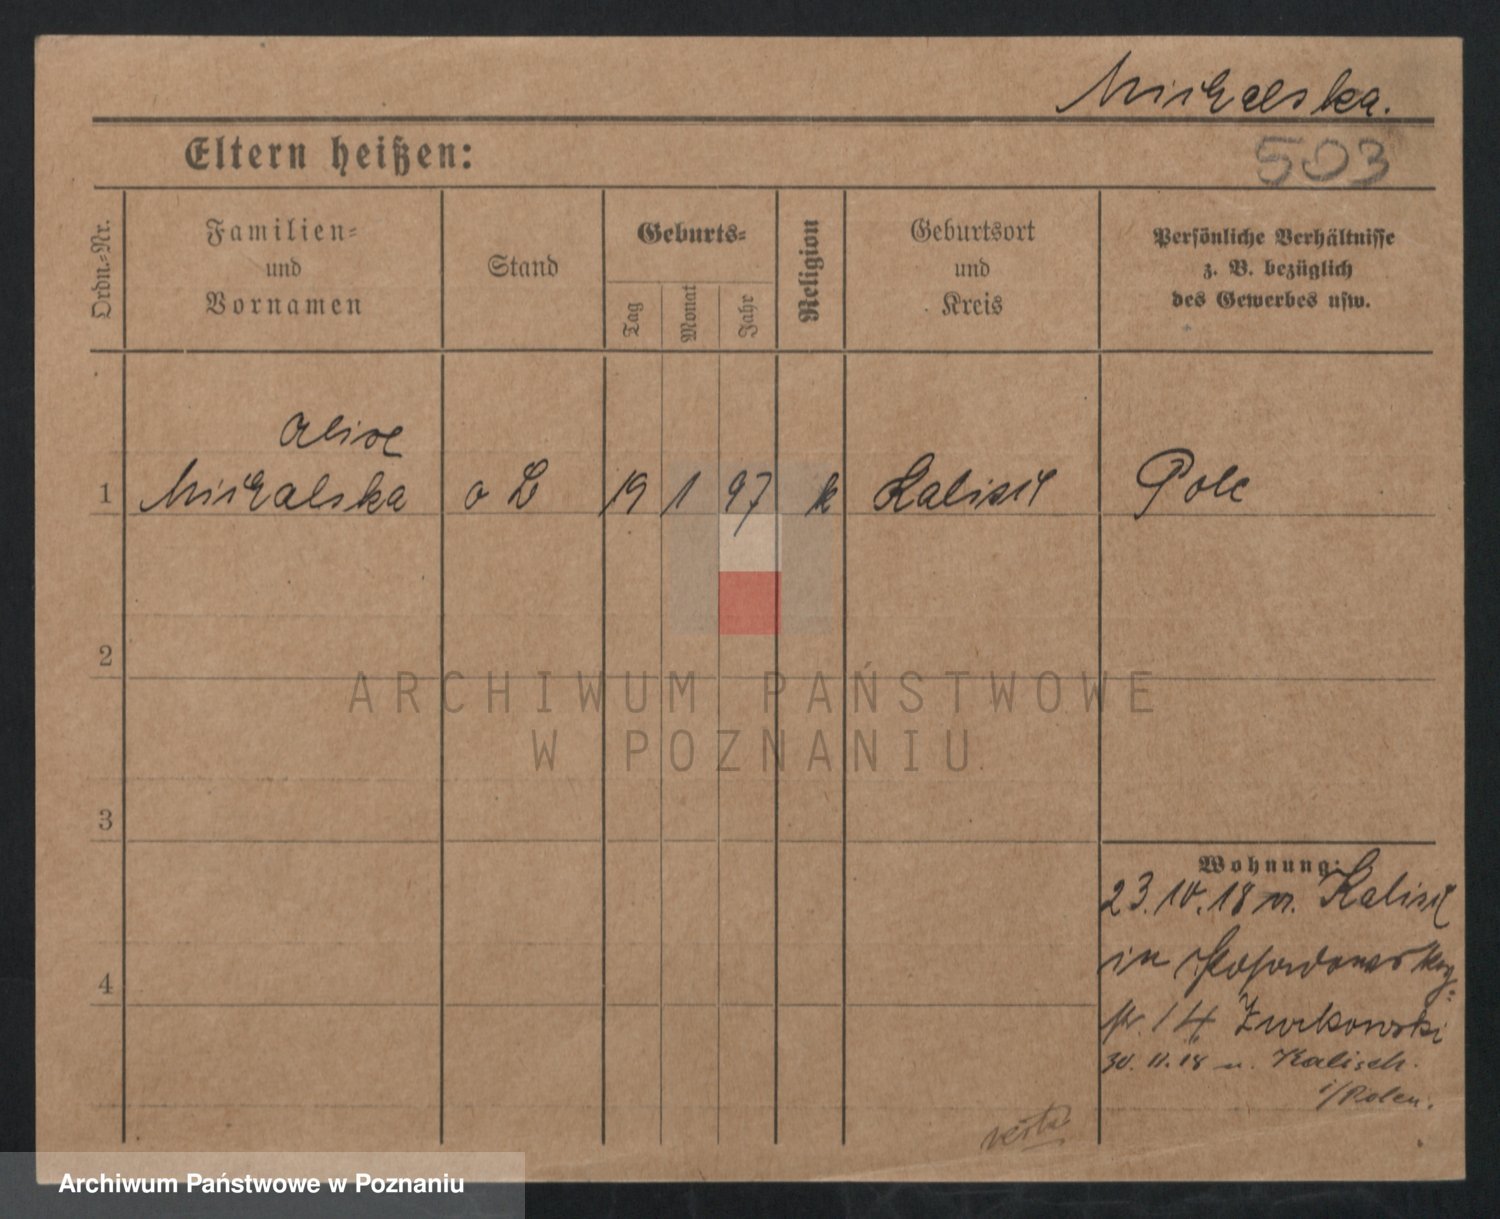 Michalska.
Eltern heißen:
503
Ordn.-Nr.
Familien-
und
Vornamen
Stand
Geburts-
Tag
Monat
Jahr
Religion
Geburtsort
und
Kreis
Persönliche Verhältnisse
z. B. bezüglich
des Gewerbes usw.
Alice
1 Michalska o L 19 1 97 k Kalisch Pole
2
ARCHIWUM PAŃSTWOWE
W POZNANIU
3
Wohnung:
23.10.18 v. Kalisch
in
4
14 Zurkowski
30.11.18 n. Kalisch.
i/Polen.
Archiwum Państwowe w Poznaniu